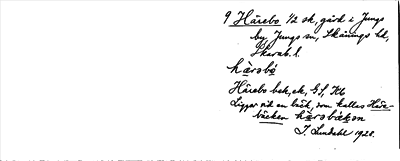 9 Häsebo 1/2 sk, gård i Jungs
by, Jungs sn, Skånings hd,
Skarab. l.
hàrsbó
Häsebo bek, ek, GS, Kb
Ligger vid en bäck, som kallas Häse-
bäcken hàrsbǽkən
J. Lindahl 1920.